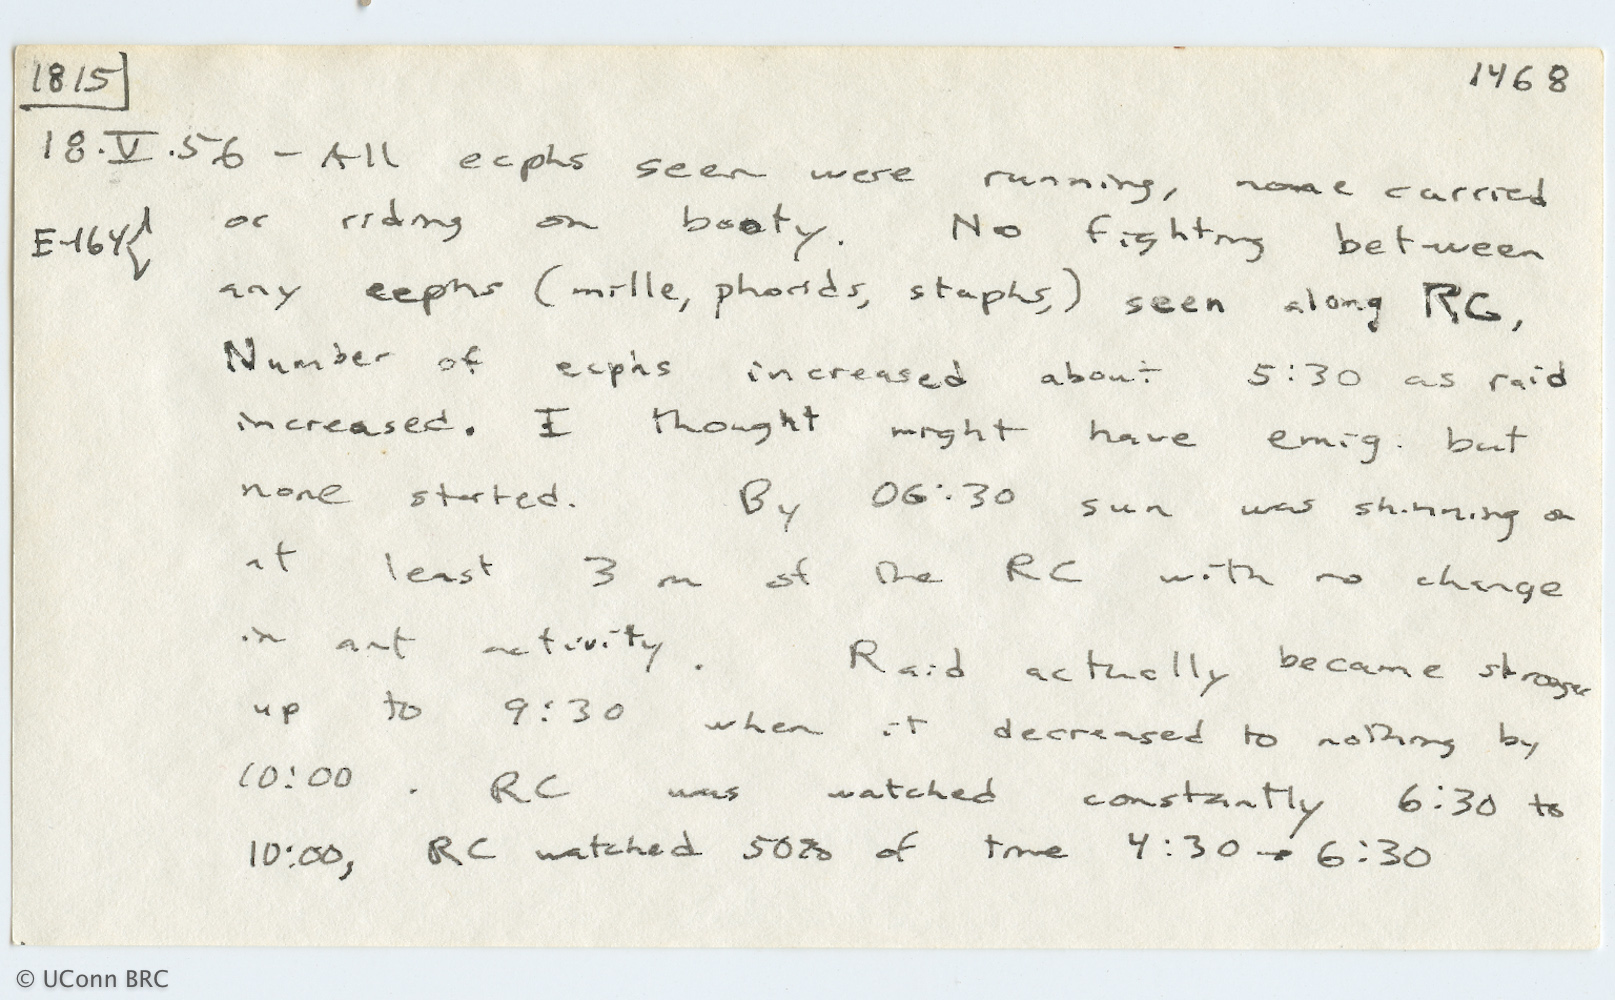 1815 1468
18.V.56 - All ecphs seen were running, none carried
E-164 or riding on booty. No fighting between
any ecphs (mille, phorids, staphs,) seen along RC,
Number of ecphs increased about 5:30 as raid
increased. I thought might have emig. but
none started. By 06:30 sun was shinning on
at least 3 m of the RC with no change
in ant activity. Raid actually became stronger
up to 9:30 when it decreased to nothing by
10:00. RC was watched constantly 6:30 to
10:00, RC watched 50% of time 4:30 → 6:30
© UConn BRC